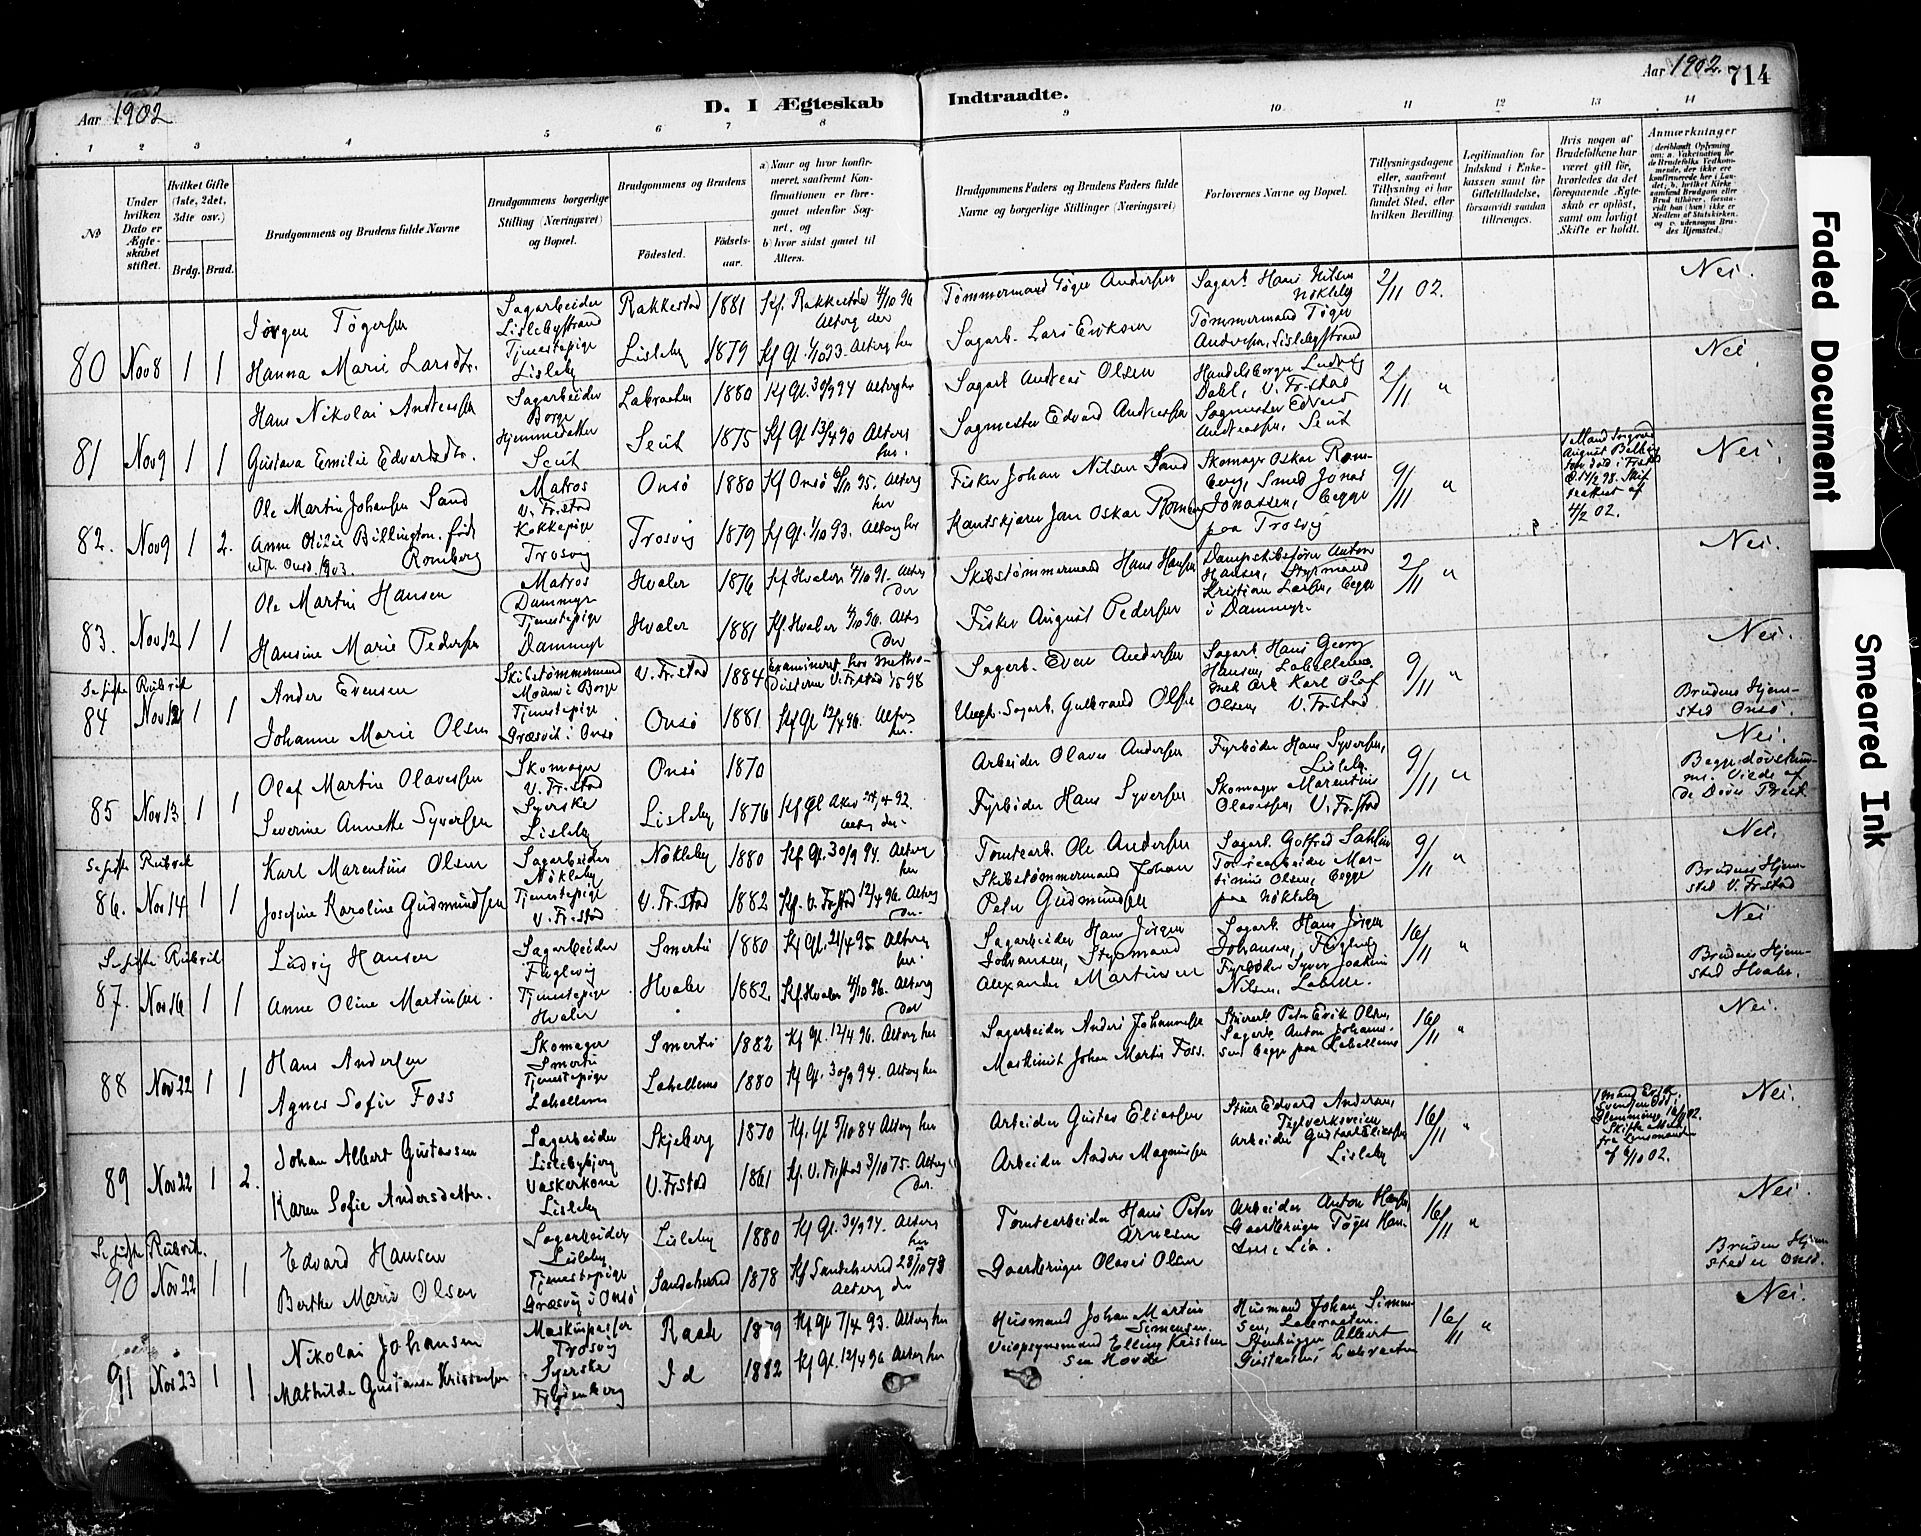 Aar 1902
D. I Ægteskab Indtraadte.
Aar 1902. 714
1 2 3 4 5 6 7 8 9 10 11 12 13 14
№
Under hvilken Dato er Ægteskabet stiftet.
Hvilket Gifte (1ste, 2det, 3dte osv.)
Brdg. Brud.
Brudgommens og Brudens fulde Navne
Brudgommens borgerlige Stilling (Næringsvei) og Bopæl.
Brudgommens og Brudens
Födested. Födselsaar.
a) Naar og hvor konfirmeret, saafremt Konfirmationen er foregaaet udenfor Sognet, og
b) hvor sidst gaaet til Alters.
Brudgommens Faders og Brudens Faders fulde Navne og borgerlige Stillinger (Næringsvei)
Forlovernes Navne og Bopæl.
Tillysningsdagene eller, saafremt Tillysning ei har fundet Sted, efter hvilken Bevilling.
Legitimation for Indskud i Enkekassen samt for Giftetilladelse, forsaavidt saadan tiltrænges.
Hvis nogen af Brudefolkene har været gift før, hvorledes da det foregaaende Ægteskab er oplöst, samt om lovligt Skifte er holdt.
Anmærkninger
80 Nov 8 1 1
Jörgen Tögersen
Sagarbeider
Lislebystrand
Rakkestad 1881
Kf. Rakkestad 4/10 96
Alterg der
Tömmermand Töger Andersen
Sagarb. Hans Nilsen
Nökleby
2/11 02.
Nei.
Hanna Marie Larsdtr.
Tjenestepige
Lisleby
Lisleby 1879
Kf Gl. 1/10 93. Alterg her
Sagarb. Lars Eriksen
Tömmermand Töger
Andersen, Lislebystrand
81 Nov 9 1 1
Hans Nikolai Andersen
Sagarbeider
Borge
Labraaten 1880
Kf Gl. 30/9 94 Alterg her
Sagarb Andreas Olsen
Handelsborger Ludvig
Dahl, V. Fr.stad
2/11 "
Nei
Gustava Emilie Edvardsdtr.
Hjemmedatter
Seut
Seut 1875
Kf Gl 13/4 90 Alterg
her.
Sagmester Edvard Andreassen
Sagmester Edvard
Andreassen, Seut
82. Nov 9 1 2.
Ole Martin Johansen Sand
Matros
V. Fr.stad
Onsö 1880
Kf Onsö 6/10 95. Alterg
her
Fisker Johan Nilsen Sand
Skomager Oskar Rom-
berg, Smed Jonas
Jonassen, begge
paa Trosvig
9/11 "
4/2 02.
Nei.
Anne Otilie Billington född
Romberg
Kokkepige
Trosvig
Trosvig 1879
Kf Gl. 1/10 93. Alterg her
Jan Oskar Romberg
83. Nov 12 1 1
Ole Martin Hansen
Matros
Dammyr
Hvaler 1876
Kf Hvaler 4/10 91. Alterg
der
Skibstömmermand Hans Hansen
Dampskibsförer Anton
Hansen, Styrmand
Kristian Larsen, begge
i Dammyr.
2/11 "
Nei.
Hansine Marie Pedersen
Tjenestepige
Dammyr
Hvaler 1881
Kf. Hvaler 4/10 96. Alterg
der
Fisker August Pedersen
Se sidste Rubrik
84 Nov 12 1 1
Anders Evensen
Skibstömmermand
Moum i Borge
V. Fr.stad 1884
Examineret hos Metho-
disterne V. Fr.stad 1/5 98
Sagarb. Even Andersen
Sagarb. Hans Georg
Hansen, Labellemo
Mek Arb Karl Olaf
Olsen, V. Fr.stad.
9/11 "
Nei.
Johanne Marie Olsen
Tjenestepige
Græsvik i Onsö
Onsö 1881
Kf Gl 12/4 96. Alterg
her.
Ungk. Sagarb. Gulbrand Olsen
Brudens Hjem-
sted Onsö.
85 Nov 13 1 1
Olaf Martin Olavessen
Skomager
V. Fr.stad
Onsö 1870
Arbeider Olaves Andersen
Fyrböder Hans Syversen,
Lisleby.
9/11 "
Nei.
Begge dövstum-
me. Viede af
de Döves Præst
Severine Annette Syversen
Syerske
Lisleby
Lisleby 1876
Kf Gl Aker 24/4 92.
Alterg der.
Fyrböder Hans Syversen
Skomager Marentius
Olavessen, V. Fr.stad
Se sidste Rubrik
86. Nov 14 1 1
Karl Marentius Olsen
Sagarbeider
Nökleby
Nökleby 1880
Kf. Gl. 30/9 94. Alterg
her
Tomtearb. Ole Andersen
Sagarb. Gotfred Sahlin
Tomtearbeider Mar-
tinius Olsen, begge
paa Nökleby
9/11 "
Nei.
Josefine Karoline Gudmundsen
Tjenestepige
V. Fr.stad
V. Fr.stad 1882
Kf. V. Fr.stad 12/4 96. Alterg
der.
Skibstömmermand Johan
Peter Gudmundsen
Brudens Hjem-
sted V. Fr.stad
Se sidste Rubrik
87. Nov 16 1 1
Ludvig Hansen
Sagarbeider
Fuglevig
Smertu 1880
Kf Gl. 21/4 95 Alterg
her.
Sagarbeider Hans Jörgen
Johansen, Styrmand
Alexander Martinsen
Sagarb. Hans Jörgen
Johansen, Fuglevig
Fyrböder Syver Joakim
Nilsen, Labelle.
16/11 "
Nei
Anne Oline Martinsen.
Tjenestepige
Hvaler
Hvaler 1882.
Kf. Hvaler 4/10 96. Alterg
der
Brudens Hjem-
sted Hvaler.
88 Nov 22 1 1
Hans Andersen
Skomager
Smertu
Smertu 1882
Kf Gl. 12/4 96. Alterg her
Sagarbeider Anders Johannessen
Stuerarb Peter Erik Olsen,
Sagarb. Anton Johannes-
sen begge paa Labellemo
16/11 "
Nei.
Agnes Sofie Foss
Tjenestepige
Labellemo
Labellemo 1880
Kf Gl. 30/9 94. Alterg her
Maskinist Johan Martin Foss.
89 Nov 22 1 2.
Johan Albert Gustavsen
Sagarbeider
Lislebybjerg
Skjeberg 1870
Kf. Gl 5/10 84 Alterg her
Arbeider Gustav Eliassen
Stuer Edvard Andersen,
Teglverksveien
Arbeider Gustav Eliassen
Lisleby
16/11 "
Nei.
Karen Sofie Andersdatter.
Vaskerkone
Lisleby
V. Fr.stad 1861
Kf V. Fr.stad 3/10 75. Alterg
der.
Arbeider Anders Magnussen
Se sidste Rubrik.
90 Nov 22 1 1
Edvard Hansen
Sagarbeider
Lisleby
Lisleby 1880
Kf Gl. 30/9 94. Alterg
her
Tomtearbeider Hans Peter
Arnesen
Arbeider Anton Hansen,
Gaardbruger Töger Han-
sen, Lia.
16/11 "
Nei.
Berthe Marie Olsen
Tjenestepige
Græsvig i Onsö
Sandeherred 1878
Kf Sandeherred 28/10 93
Alterg der
Gaardbruger Olavus Olsen
Brudens Hjem-
sted er Onsö.
91 Nov 23 1 1
Nikolai Johansen
Maskinpasser
Trosvig
Raade 1879
Kf Gl 7/4 93. Alterg her
Husmand Johan Martin
Simensen.
Husmand Johan Simen-
sen, Labraaten.
Stenhugger Albert
Gustavsen Labraaten
16/11 "
Nei.
Mathilde Gustava Kristensen
Syerske
Frydenberg
Id 1882
Kf Gl. 12/4 96 Alterg her
Veiopsynsmand Elling Kristen
sen Hovde
Faded Document
Smeared Ink